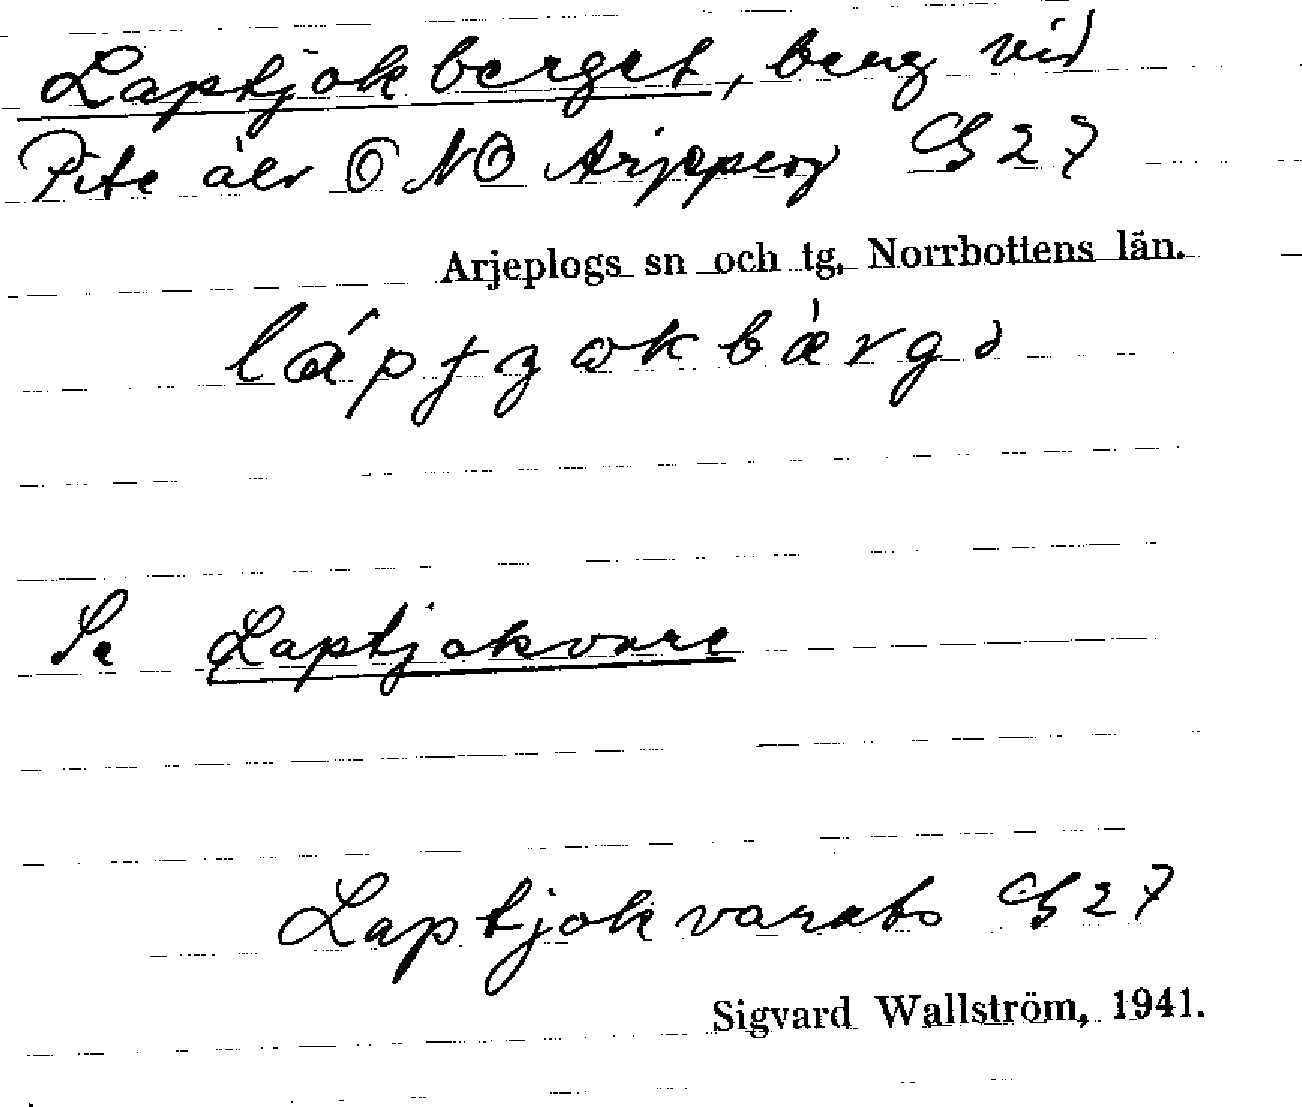 Laptjokberget, berg vid
Pite älv ONO Arjeplog G 27
Arjeplogs sn och tg, Norrbottens län.
Se Laptjokvare
Laptjokvarats G 27
Sigvard Wallström, 1941.